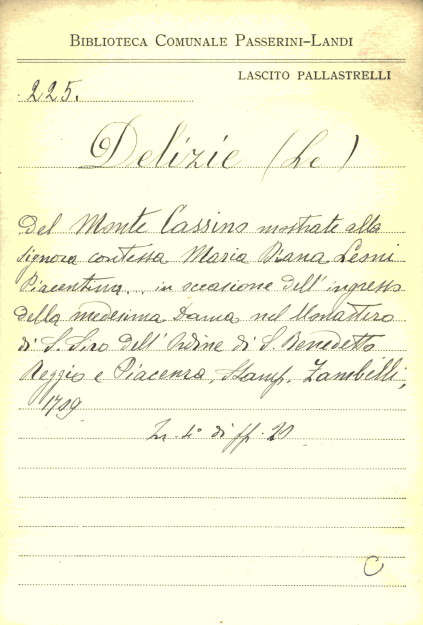 BIBLIOTECA COMUNALE PASSERINI-LANDI
LASCITO PALLASTRELLI
225.
Delizie (Le)
Del Monte Cassino mostrate alla
signora contessa Maria Diana Leoni
Piacentina... in occasione dell'ingresso
della medesima Dama nel Monastero
di S. Siro dell'Ordine di S. Benedetto
Reggio e Piacenza, Stamp. Zambelli,
1709
In 4° di pp. 20
C